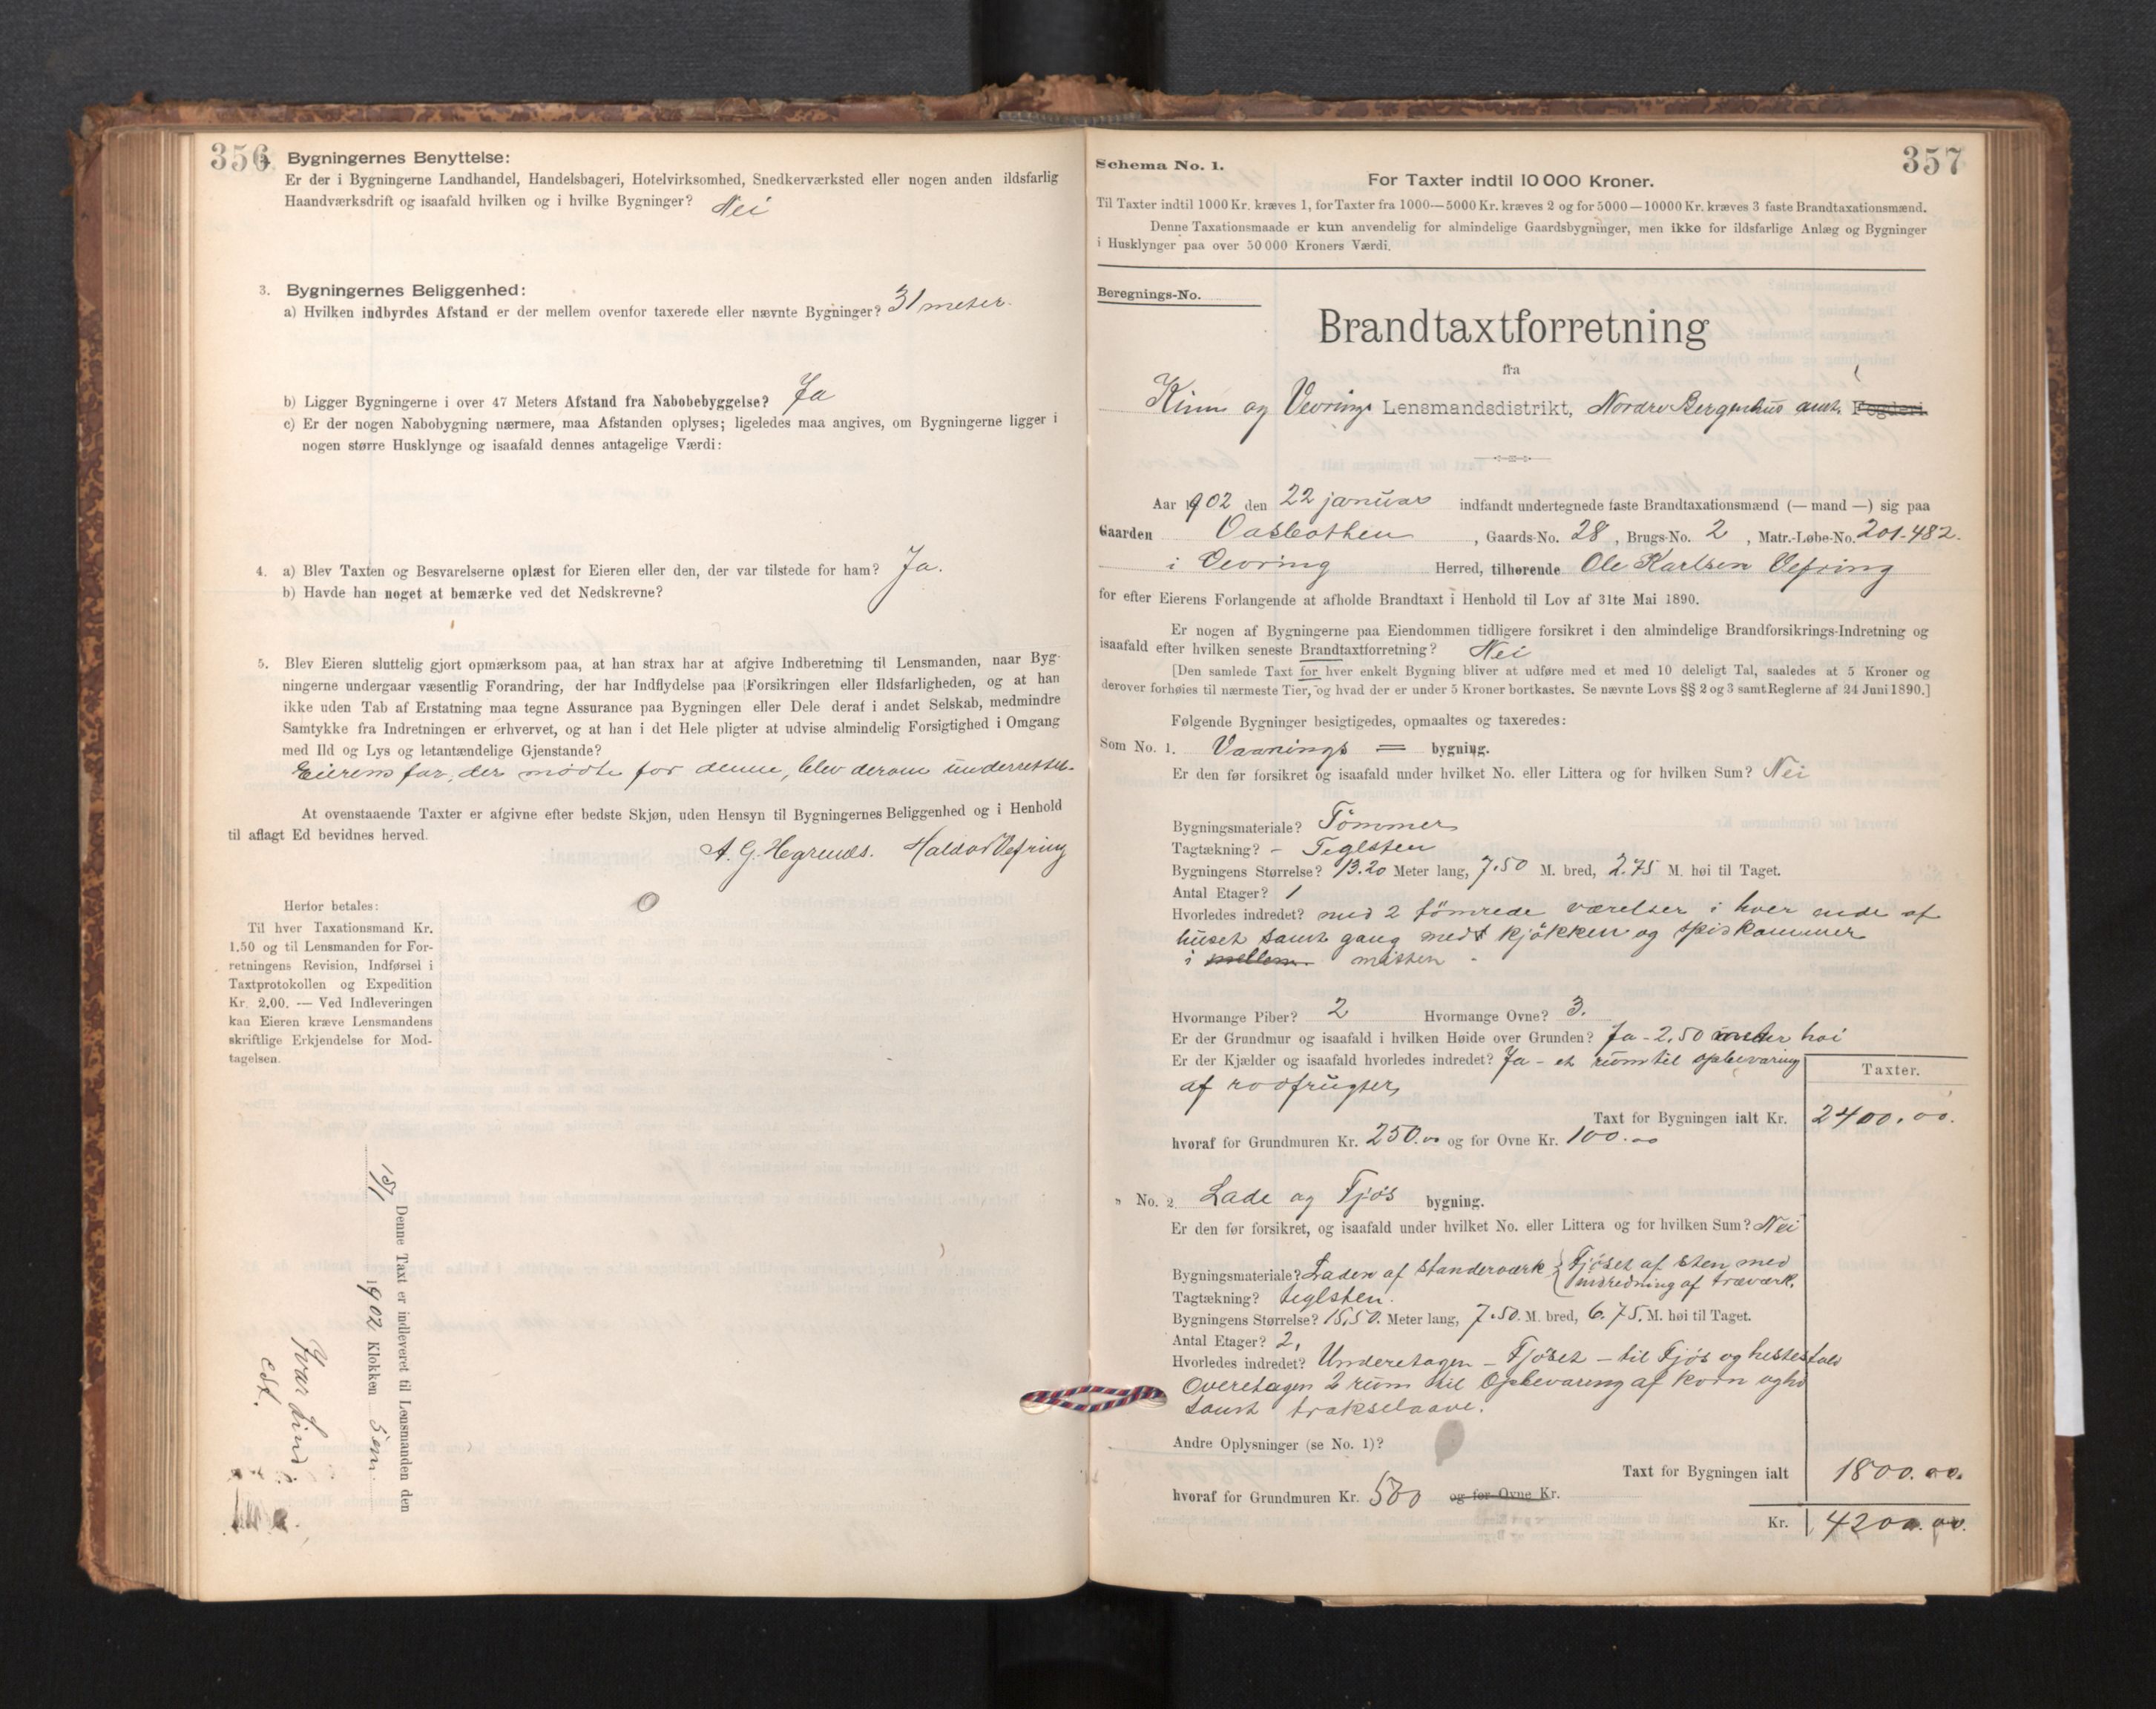 356
Bygningernes Benyttelse:
Er der i Bygningerne Landhandel, Handelsbageri, Hotelvirksomhed, Snedkerværksted eller nogen anden ildsfarlig
Haandværksdrift og isaafald hvilken og i hvilke Bygninger? Nei
3. Bygningernes Beliggenhed:
a) Hvilken indbyrdes Afstand er der mellem ovenfor taxerede eller nævnte Bygninger? 31 meter.
b) Ligger Bygningerne i over 47 Meters Afstand fra Nabobebyggelse? Ja
c) Er der nogen Nabobygning nærmere, maa Afstanden oplyses; ligeledes maa angives, om Bygningerne ligger i
nogen større Husklynge og isaafald dennes antagelige Værdi:
4. a) Blev Taxten og Besvarelserne oplæst for Eieren eller den, der var tilstede for ham? Ja.
b) Havde han noget at bemærke ved det Nedskrevne?
5. Blev Eieren sluttelig gjort opmærksom paa, at han strax har at afgive Indberetning til Lensmanden, naar Byg-
ningerne undergaar væsentlig Forandring, der har Indflydelse paa Forsikringen eller Ildsfarligheden, og at han
ikke uden Tab af Erstatning maa tegne Assurance paa Bygningen eller Dele deraf i andet Selskab, medmindre
Samtykke fra Indretningen er erhvervet, og at han i det Hele pligter at udvise almindelig Forsigtighed i Omgang
med Ild og Lys og letantændelige Gjenstande?
Eierens far, der mødte for denne, blev derom underrettet.
At ovenstaaende Taxter er afgivne efter bedste Skjøn, uden Hensyn til Bygningernes Beliggenhed og i Henhold
til aflagt Ed bevidnes herved.
A. G. Hegrenæs. Haldor Vefring
Herfor betales:
Til hver Taxationsmand Kr.
1,50 og til Lensmanden for For-
retningens Revision, Indførsel i
Taxtprotokollen og Expedition
Kr. 2,00. — Ved Indleveringen
kan Eieren kræve Lensmandens
skriftlige Erkjendelse for Mod-
tagelsen.
Denne Taxt er indleveret til Lensmanden den
1902 Klokken 5 em.
Ivar Lind
cst.
357
Schema No. 1.
For Taxter indtil 10 000 Kroner.
Til Taxter indtil 1000 Kr. kræves 1, for Taxter fra 1000—5000 Kr. kræves 2 og for 5000—10000 Kr. kræves 3 faste Brandtaxationsmænd.
Denne Taxationsmaade er kun anvendelig for almindelige Gaardsbygninger, men ikke for ildsfarlige Anlæg og Bygninger
i Husklynger paa over 50 000 Kroners Værdi.
Beregnings-No.
Brandtaxtforretning
fra
Kinn og Vevrings Lensmandsdistrikt, Nordre Bergenhus amt. Fogderi.
Aar 1902 den 22 januar indfandt undertegnede faste Brandtaxationsmænd (— mand —) sig paa
Gaarden Vasbotten, Gaards-No. 28, Brugs-No. 2, Matr.-Løbe-No. 201-482.
i Vevring Herred, tilhørende Ole Karlsen Vefring
for efter Eierens Forlangende at afholde Brandtaxt i Henhold til Lov af 31te Mai 1890.
Er nogen af Bygningerne paa Eiendommen tidligere forsikret i den almindelige Brandforsikrings-Indretning og
isaafald efter hvilken seneste Brandtaxtforretning? Nei
[Den samlede Taxt for hver enkelt Bygning bliver at udføre med et med 10 deleligt Tal, saaledes at 5 Kroner og
derover forhøies til nærmeste Tier, og hvad der er under 5 Kroner bortkastes. Se nævnte Lovs §§ 2 og 3 samt Reglerne af 24 Juni 1890.]
Følgende Bygninger besigtigedes, opmaaltes og taxeredes:
Som No. 1. Vaanings = bygning.
Er den før forsikret og isaafald under hvilket No. eller Littera og for hvilken Sum? Nei
Bygningsmateriale? Tömmer
Tagtækning? – Teglsten
Bygningens Størrelse? 13.20 Meter lang, 7.50 M. bred, 2.75 M. høi til Taget.
Antal Etager? 1
Hvorledes indredet? med 2 tömrede værelser i hver ende af
huset samt gang med kjökken og spiskammer
i mellem midten
Hvormange Piber? 2 Hvormange Ovne? 3.
Er der Grundmur og isaafald i hvilken Høide over Grunden? Ja – 2.50 meter høi
Er der Kjælder og isaafald hvorledes indredet? Ja – et rum til opbevaring
af rodfrugter
Taxter.
Taxt for Bygningen ialt Kr. 2400.00.
hvoraf for Grundmuren Kr. 250.00 og for Ovne Kr. 100.00
" No. 2. Lade og Fjös bygning.
Er den før forsikret, og isaafald under hvilket No. eller Littera og for hvilken Sum? Nei
Bygningsmateriale? Laden af standerværk Fjöset af sten med
indredning af træværk.
Tagtækning? teglsten.
Bygningens Størrelse? 15,50. Meter lang, 7.50. M. bred, 6.75. M. høi til Taget.
Antal Etager? 2,
Hvorledes indredet? Underetagen – Fjöset – til Fjös og hestestald
Overetagen 2 rum til Opbevaring af korn og hö
samt trakselaave.
Andre Oplysninger (se No. 1)?
Taxt for Bygningen ialt 1800.00.
hvoraf for Grundmuren Kr. 500 og for Ovne Kr.
Kr. 4200.00.